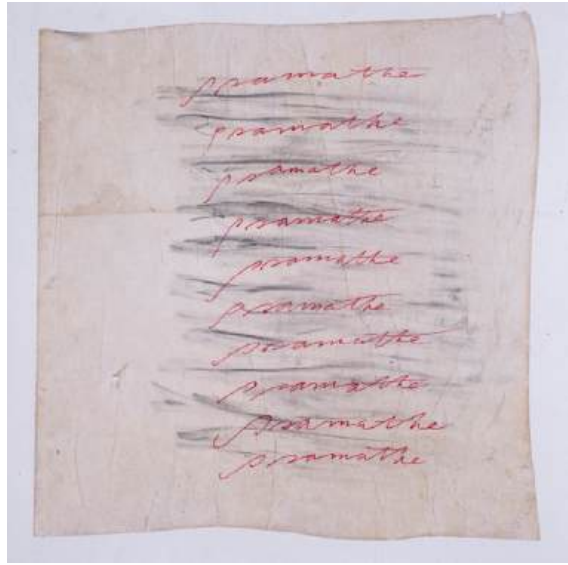 pramathe
pramathe
pramathe
pramathe
pramathe
pramathe
pramathe
pramathe
pramathe
pramathe